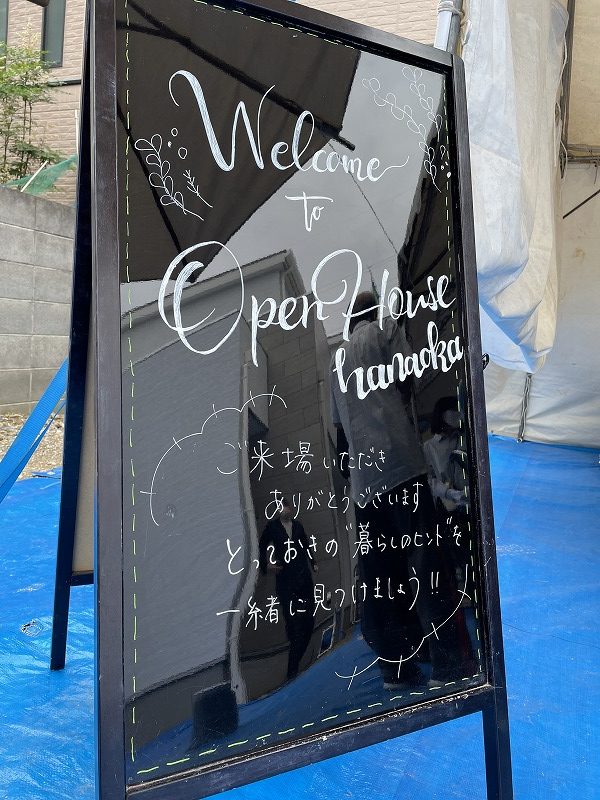 Welcome
to
Open House
hanaoka
ご来場いただき
ありがとうございます
とっておきの"暮らしのヒント"を
一緒に見つけましょう!!